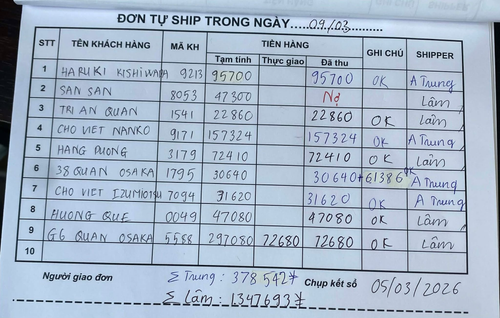 ĐƠN TỰ SHIP TRONG NGÀY.....09/03..........
STT TÊN KHÁCH HÀNG MÃ KH TIỀN HÀNG GHI CHÚ SHIPPER
Tạm tính Thực giao Đã thu
1 HARUKI KISHIWADA 9213 95700 95700 OK A Trung
2 SAN SAN 8053 47300 Nợ Lâm
3 TRI AN QUÁN 1541 22860 22860 OK Lâm
4 CHO VIET NANKO 9171 157324 157324 OK A Trung
5 HANG PUONG 3179 72410 72410 OK Lâm
6 38 QUAN OSAKA 1795 30640 30640+61386 OK A Trung
7 CHO VIET IZUMIOTSU 7094 31620 31620 OK A Trung
8 HUONG QUÊ 0049 47080 47080 OK Lâm
9 G6 QUAN OSAKA 5588 297080 72680 72680 OK Lâm
10
Người giao đơn Σ Trung: 378542¥ Chụp kết sổ 05/03/2026
Σ Lâm: 1347693¥